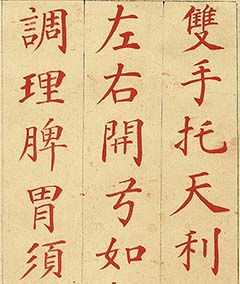 雙手托天利
左右開弓如
調理脾胃須